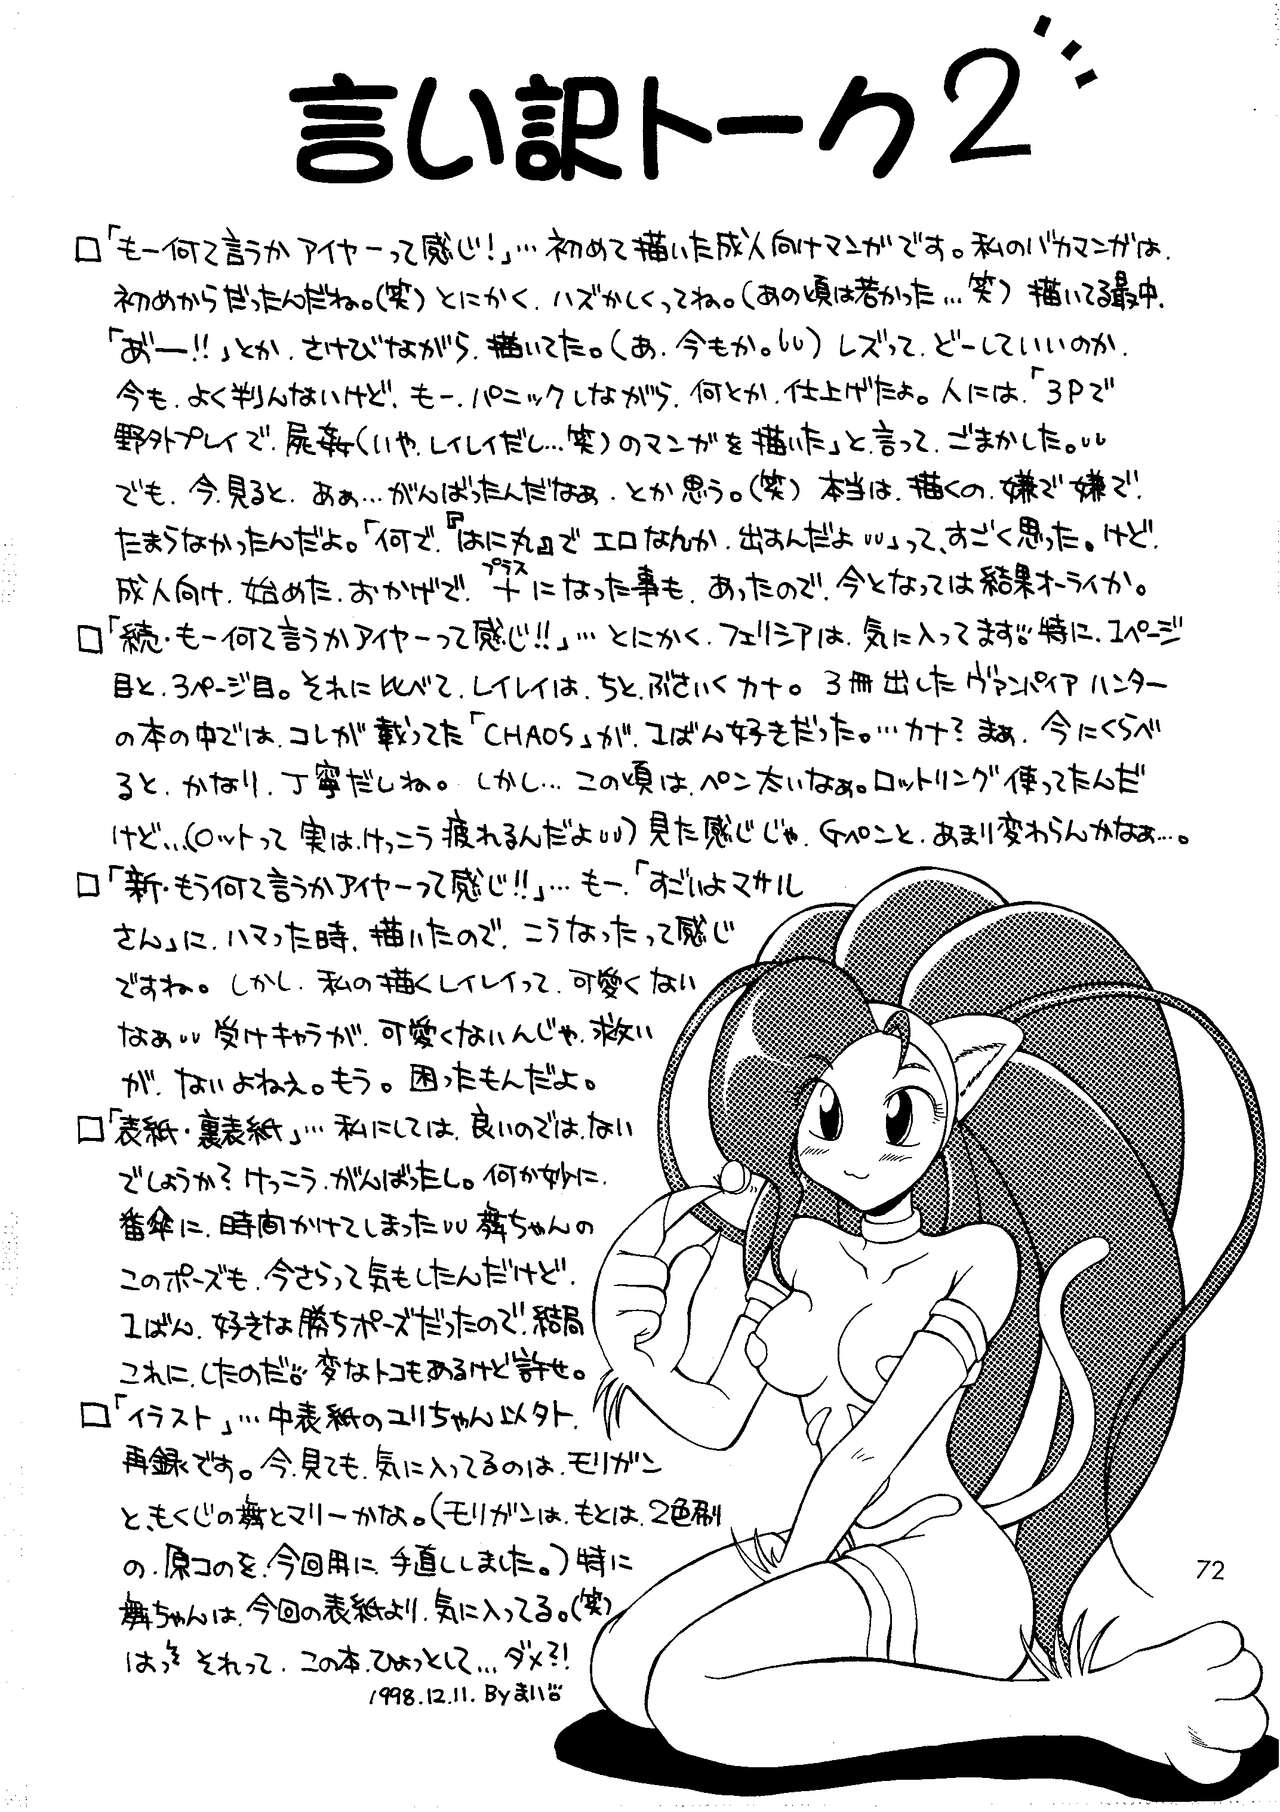 言い訳トーク2
□「もー何て言うかアイヤーって感じ!」… 初めて描いた成人向けマンガです。私のバカマンガは、
初めからだったんだね。(笑) とにかく、ハズかしくってね。(あの頃は若かった…笑) 描いてる最中、
「あ゛ー!!」とか、さけびながら、描いてた。(あ、今もか。)レズって、どーしていいのか、
今も、よく判んないけど、もー、パニックしながら、何とか、仕上げたよ。人には、「3Pで
野外プレイで、屍姦(いや、レイレイだし…笑)のマンガを描いた」と、言って、ごまかした。
でも、今、見ると、あぁ…がんばったんだなぁ、とか思う。(笑) 本当は、描くの、嫌で嫌で、
たまらなかったんだよ。「何で、『はに丸』で エロなんか、出すんだよ」って、すごく思った。けど、
成人向け、始めた、おかげで、+プラスになった事も、あったので、今となっては結果オーライか。
□「続・もー何て言うかアイヤーって感じ!!」… とにかく、フェリシアは、気に入ってます 特に、1ページ
目と、3ページ目。それに比べて、レイレイは、ちと、ぶさいくカナ。3冊出した ヴァンパイア ハンター
の本の中では、コレが載ってた「CHAOS」が、1ばん好きだった。…カナ?まぁ、今にくらべ
ると、かなり、丁寧だしね。しかし… この頃は、ペン太いなぁ。ロットリング使ってたんだ
けど…(ロットって 実は、けっこう疲れるんだよ)見た感じじゃ、Gペンと、あまり変わらんかなぁ…。
□「新・もう何て言うかアイヤーって感じ!!」… もー、「すごいよマサル
さん」に、ハマった時、描いたので、こうなったって感じ
ですね。しかし、私の描くレイレイって、可愛くない
なぁ 受けキャラが、可愛くないんじゃ、救い
が、ないよねぇ。もう。困ったもんだよ。
□「表紙・裏表紙」… 私にしては、良いのでは、ない
でしょうか?けっこう、がんばったし。何か妙に、
番傘に、時間かけてしまった 舞ちゃんの
このポーズも、今さらって気もしたんだけど、
1ばん、好きな勝ちポーズだったので、結局
これに、したのだ 変なトコもあるけど許せ。
□「イラスト」… 中表紙のユリちゃん以外、
再録です。今、見ても、気に入ってるのは、モリガン
と、もくじの舞とマリーかな。(モリガンは、もとは、2色刷
の、原コのを、今回用に、手直ししました。)特に
舞ちゃんは、今回の表紙より、気に入ってる。(笑)
はっ それって、この本、ひょっとして… ダメ?!
1998.12.11. By まい
72